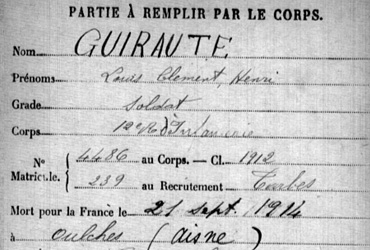 PARTIE À REMPLIR PAR LE CORPS.
Nom GUIRAUTE
Prénoms Louis Clement, Henri
Grade Soldat
Corps 12e Rt d'Infanterie
No 4486 au Corps. — Cl. 1912
Matricule. 239 au Recrutement Tarbes
Mort pour la France le 21 sept. 1914
à Oulches (aisne)